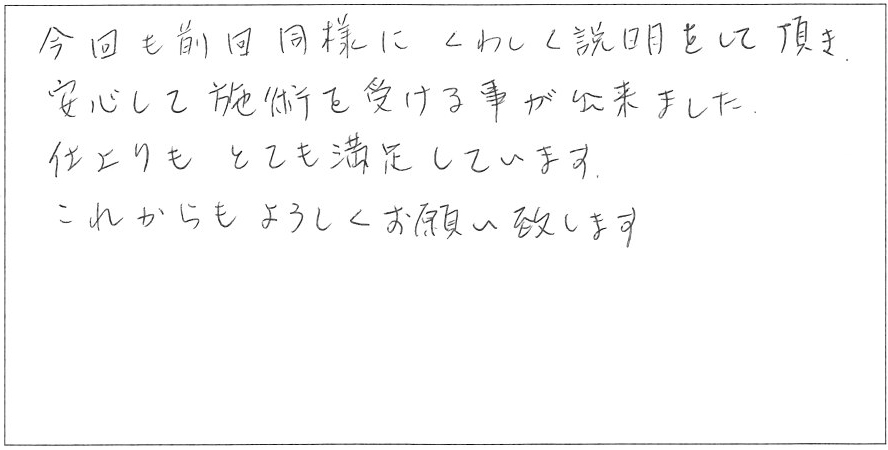 今回も前回同様に くわしく説明をして頂き.
安心して施術を受ける事が出来ました.
仕上りも とても満足しています.
これからもよろしくお願い致します